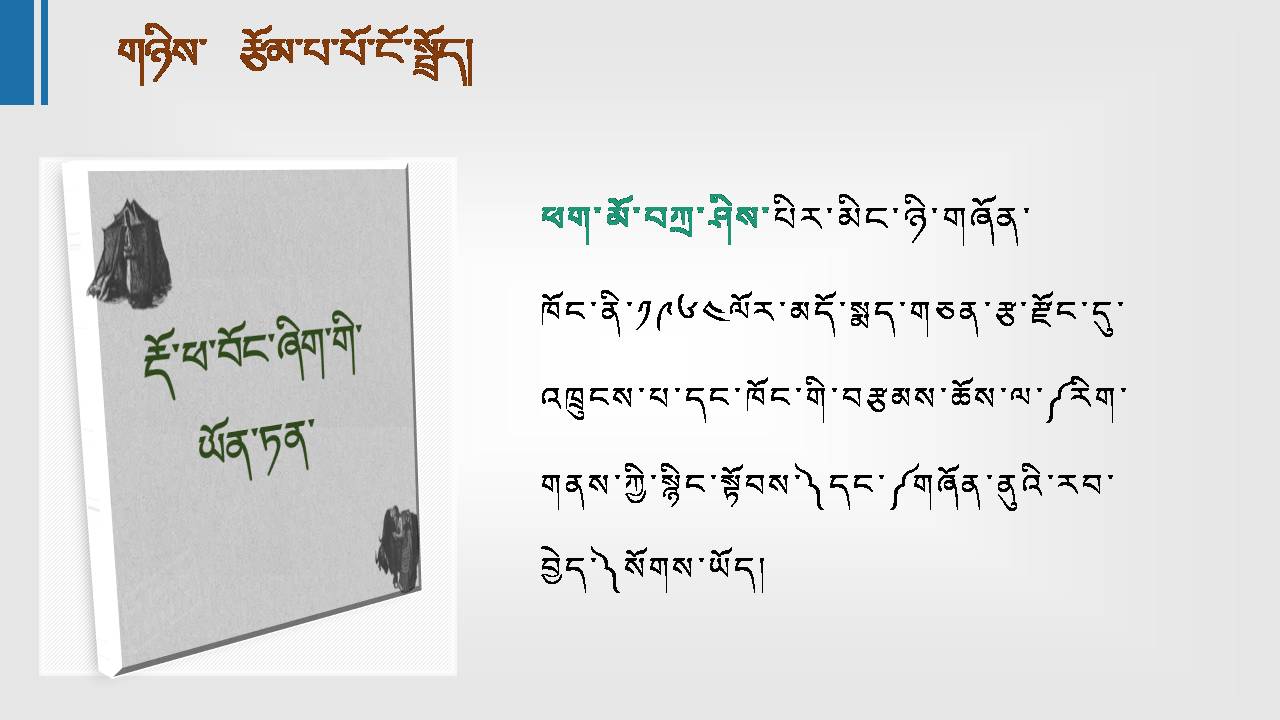 གཉིས་ རྩོམ་པ་པོ་ངོ་སྤྲོད།
རྡོ་ཕ་བོང་ཞིག་གི་
ཡོན་ཏན་
ཕག་མོ་བཀྲ་ཤིས་པིར་མིང་ཉི་གཞོན་
ཁོང་ནི་༡༩༦༤ལོར་མདོ་སྨད་གཅན་རྩ་རྫོང་དུ་
འཁྲུངས་པ་དང་ཁོང་གི་བརྩམས་ཆོས་ལ་༼རིག་
གནས་ཀྱི་སྙིང་སྟོབས་༽དང་༼གཞོན་ནུའི་རབ་
བྱེད་༽སོགས་ཡོད།